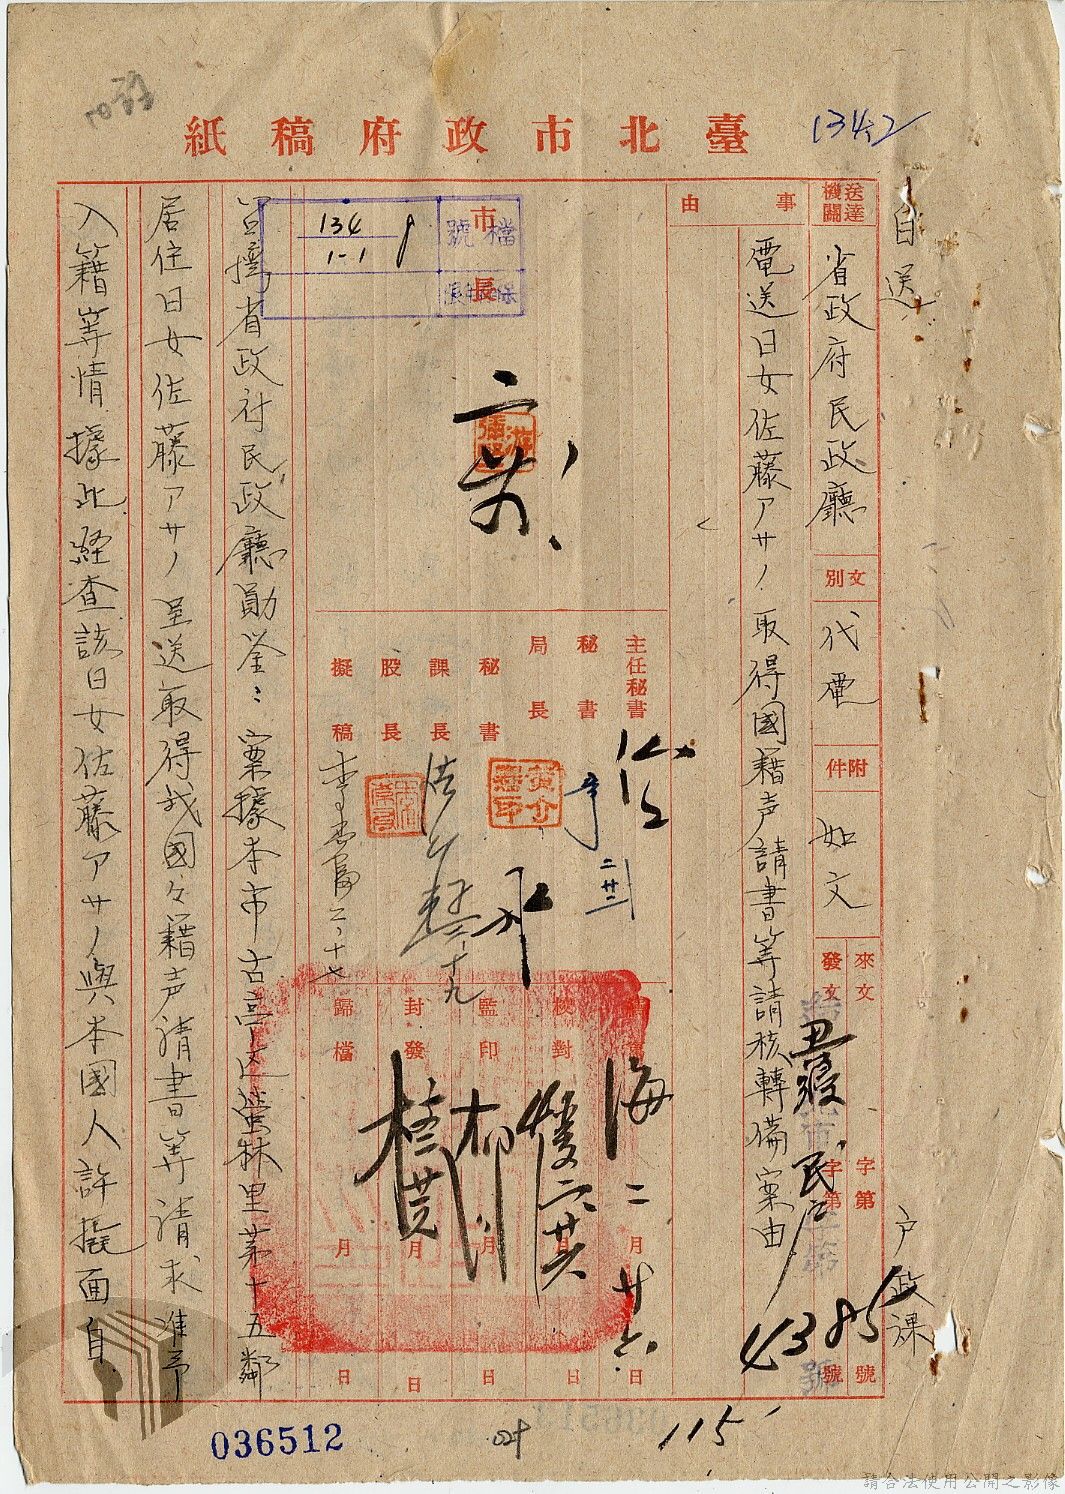 臺北市政府稿紙
1342
自送
戶政課
送達機關
省政府民政廳
文別
代電
附件
如文
來文 字第 號
發文 字第 號
民戶
4385
事由
電送日女佐藤アサノ取得國籍声請書等請核轉備案由
市長
檔號
134
1-1
主任秘書
秘書
局長
秘書
課長
股長
擬稿
二、十七
二、十九
二廿二
校對
監印
封發
歸檔
海二廿六
月 日
月 日
月 日
月 日
月 日
台灣省政府民政廳勛鑒：案據本市古亭区螢林里第十五鄰
居住日女佐藤アサノ呈送取得我國々籍声請書等請求准予
入籍等情據此経查該日女佐藤アサノ與本國人許振面自
036512
115
請合法使用公開之影像